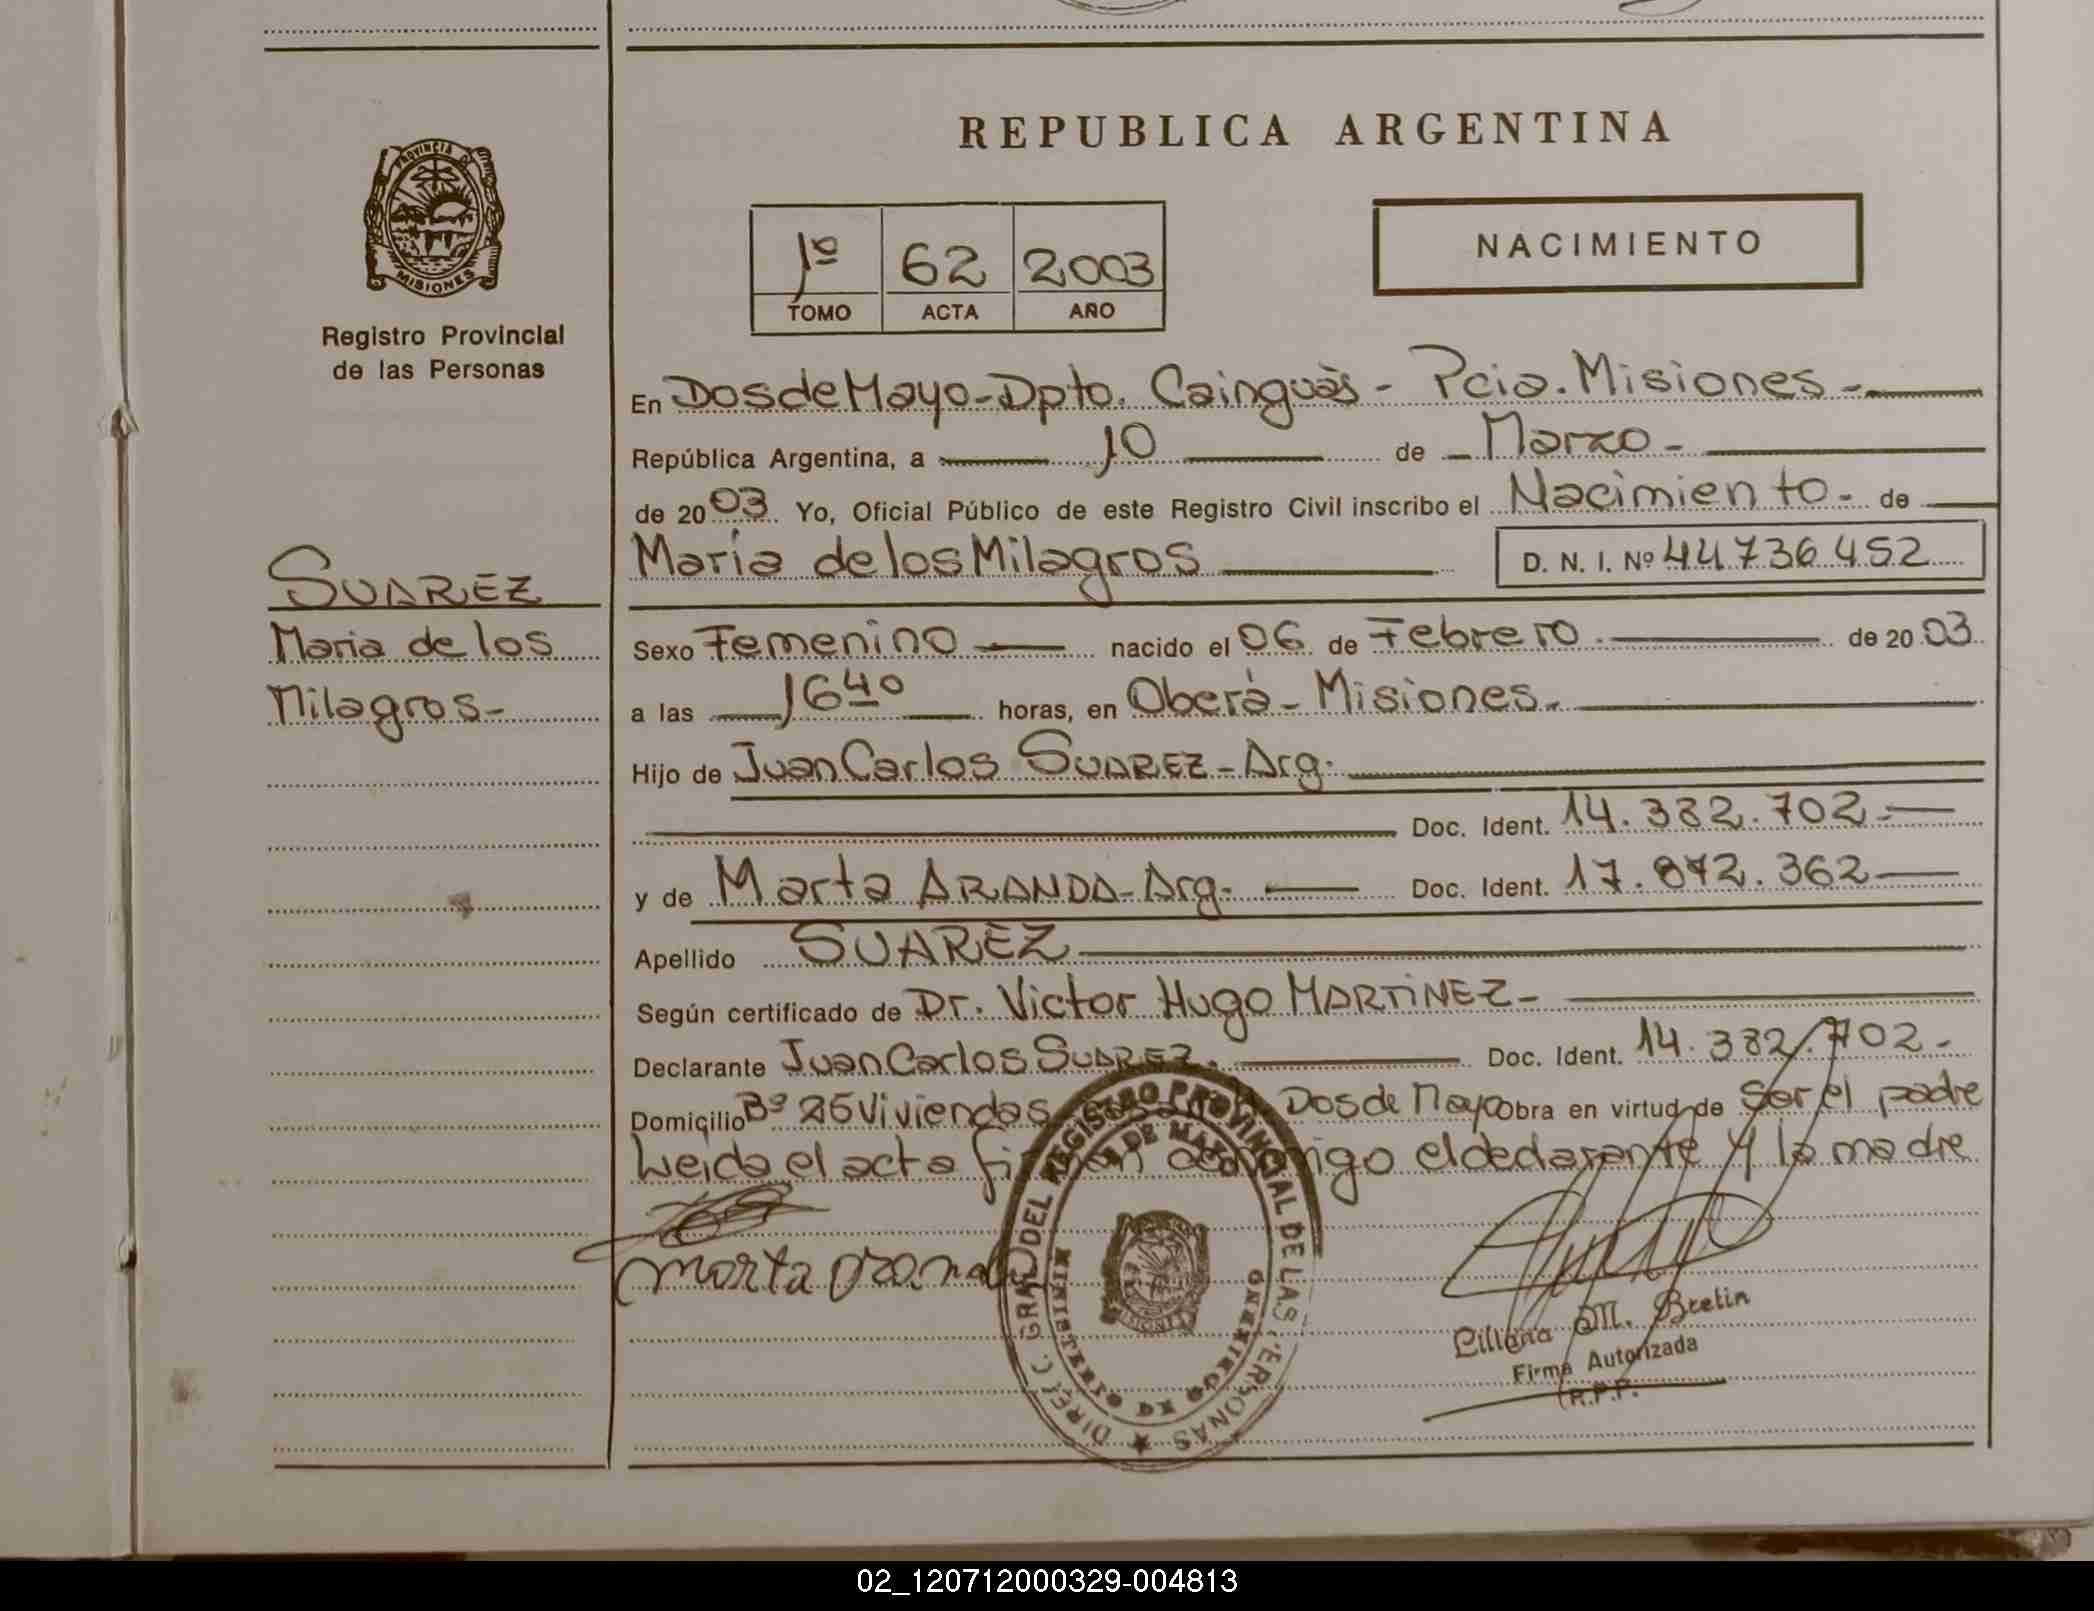 REPUBLICA ARGENTINA
PROVINCIA DE
MISIONES
Registro Provincial
de las Personas
1º 62 2003
TOMO ACTA AÑO
NACIMIENTO
En Dos de Mayo - Dpto. Cainguàs - Pcia. Misiones -
República Argentina, a 10 de Marzo -
de 2003. Yo, Oficial Público de este Registro Civil inscribo el Nacimiento - de
Maria de los Milagros D. N. I. Nº 44.736.452
SUAREZ
Maria de los
Milagros -
Sexo Femenino nacido el 06 de Febrero de 2003
a las 16 40 horas, en Oberà - Misiones.
Hijo de Juan Carlos SUAREZ - Arg.
Doc. Ident. 14.382.702.
y de Marta ARANDA - Arg. Doc. Ident. 17.872.362
Apellido SUAREZ
Según certificado de Dr. Victor Hugo MARTINEZ -
Declarante Juan Carlos SUAREZ. Doc. Ident. 14.382.702 -
Domicilio Bº 25 Viviendas Dos de Mayo obra en virtud de Ser el padre
Leida el acta firman conmigo el declarante y la madre
marta arand
DIRECC. GRAL. DEL REGISTRO PROVINCIAL DE LAS PERSONAS
MINISTERIO DE GOBIERNO
2 DE MAYO
MISIONES
Liliana M. Bretin
Firma Autorizada
(R.P.P.)
02_120712000329-004813